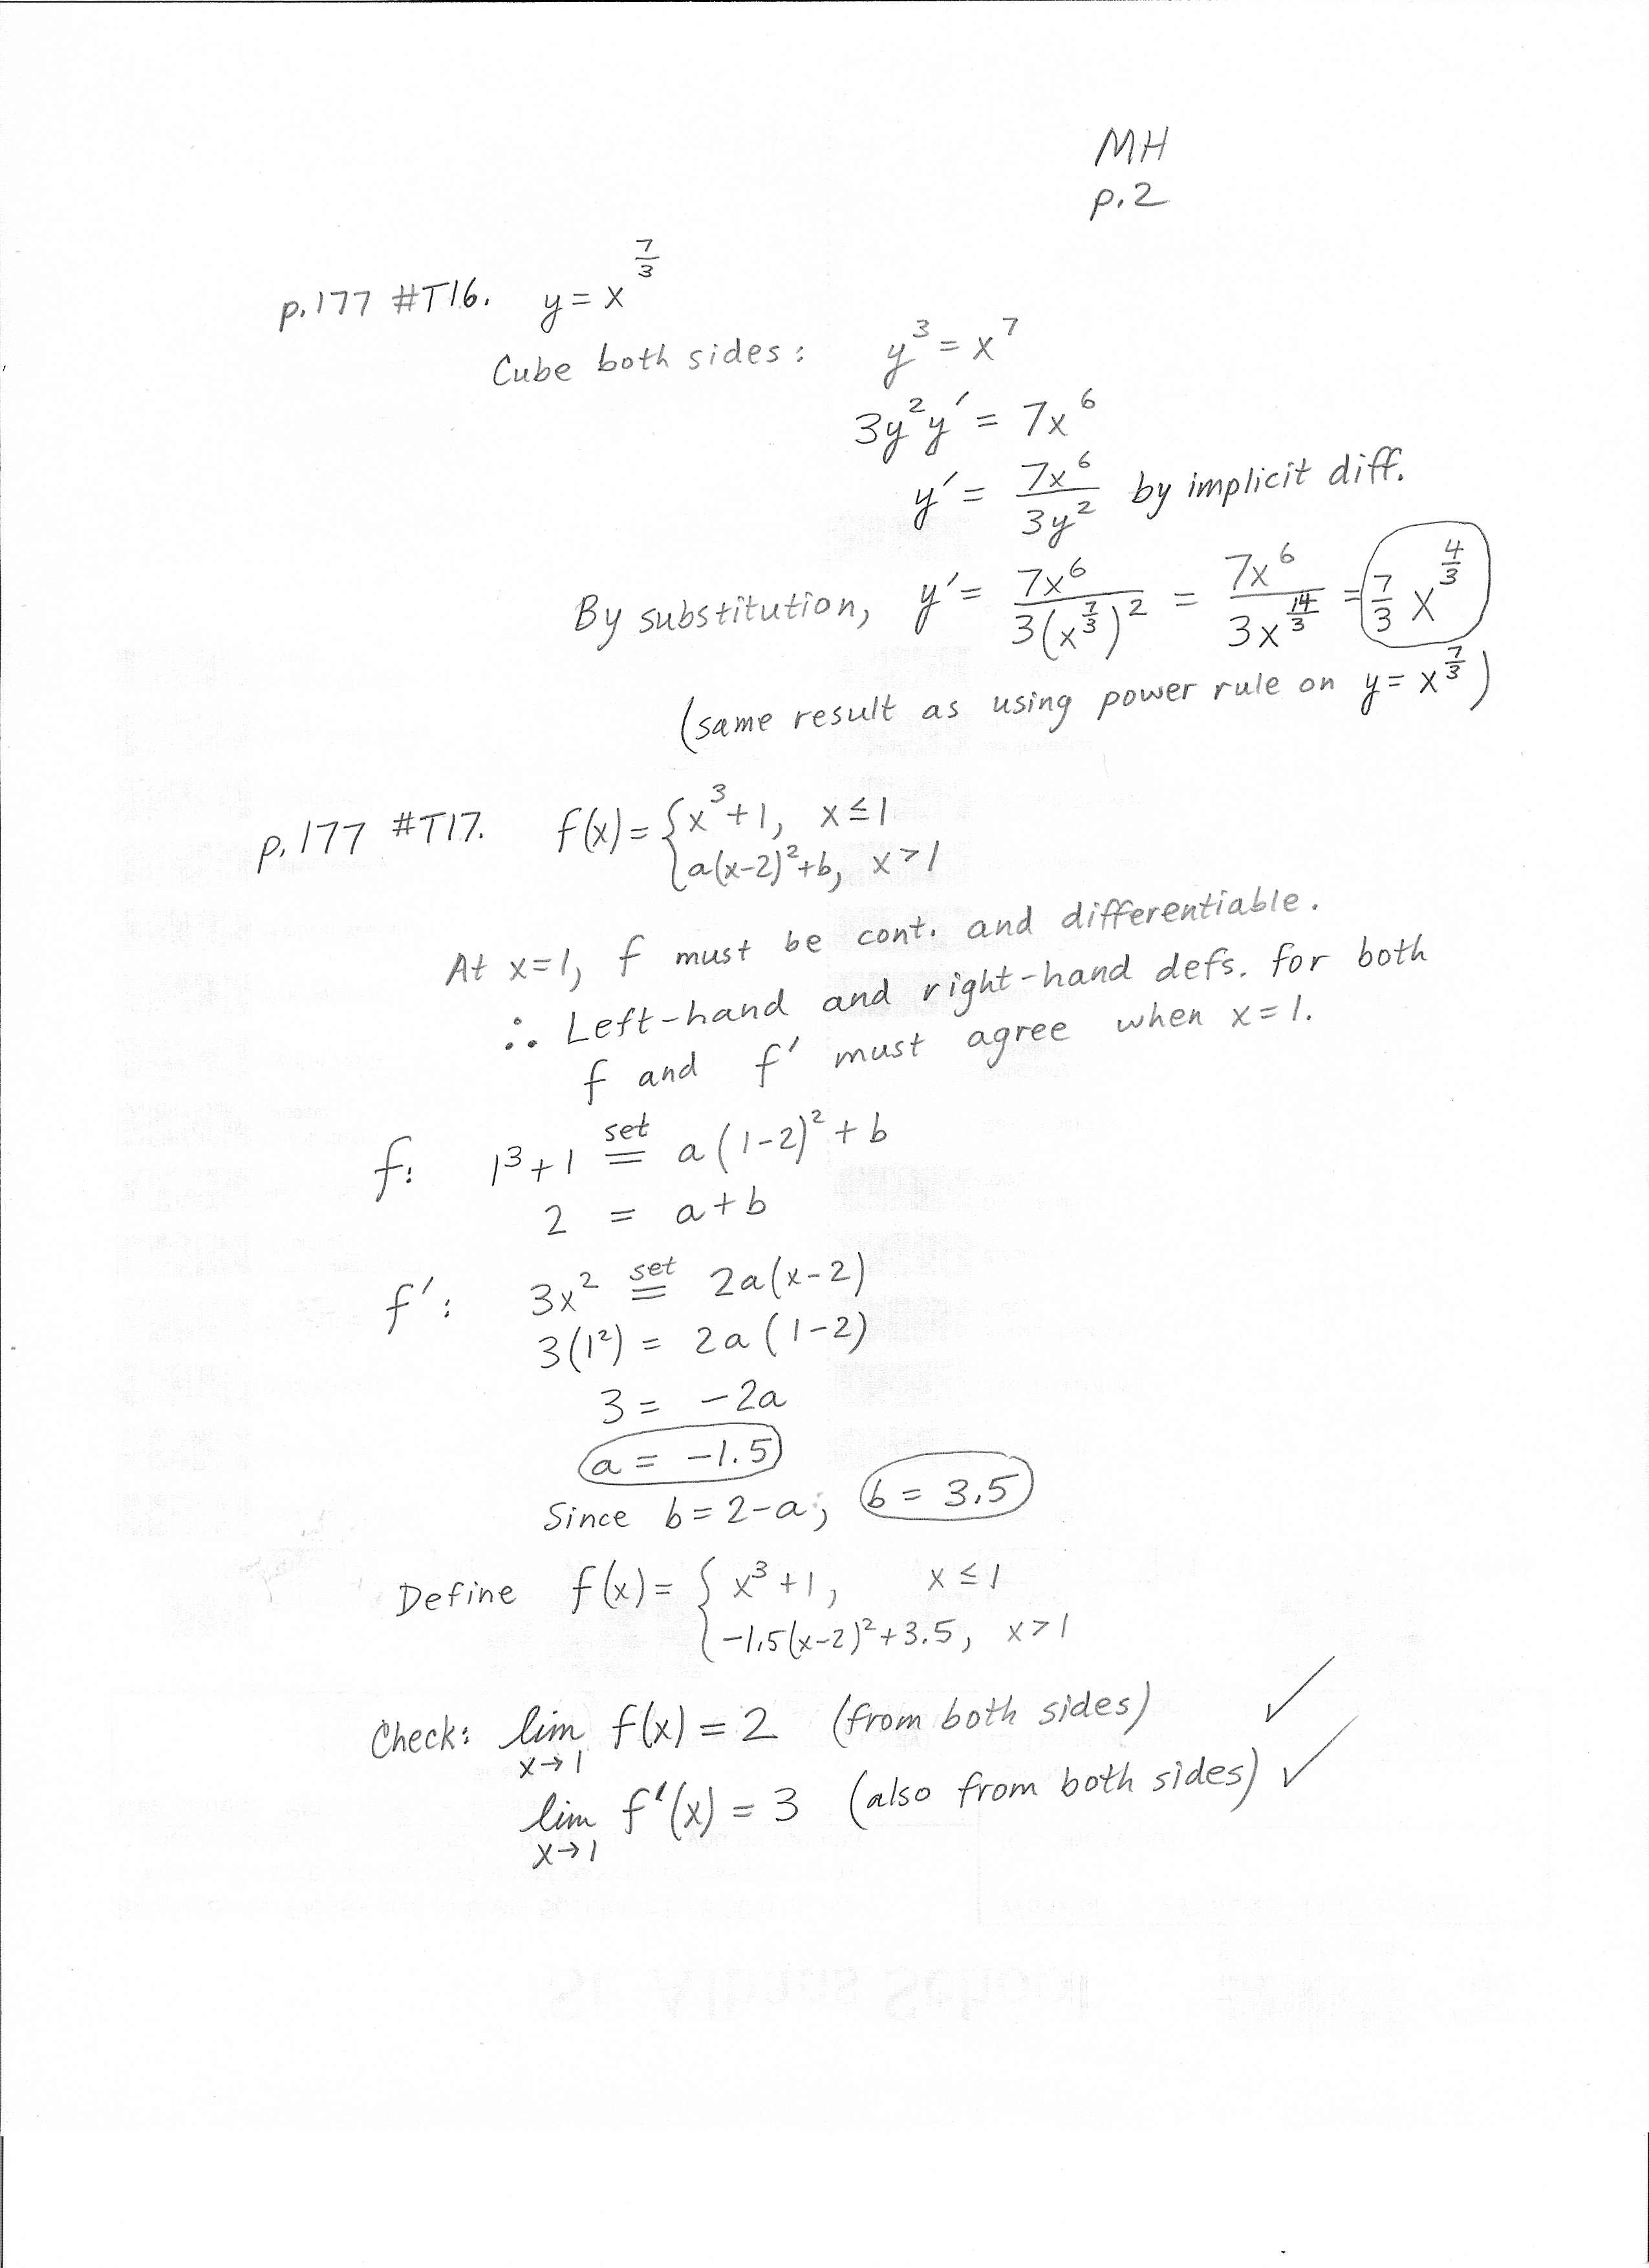 MH
p.2
p.177 #T16. y = x^(7/3)
Cube both sides: y³ = x⁷
3y²y′ = 7x⁶
y′ = 7x⁶/3y² by implicit diff.
By substitution, y′ = 7x⁶/3(x^(7/3))² = 7x⁶/3x^(14/3) = 7/3 x^(4/3)
(same result as using power rule on y = x^(7/3))
p.177 #T17. f(x) = { x³+1, x ≤ 1
a(x-2)²+b, x > 1
At x=1, f must be cont. and differentiable.
∴ Left-hand and right-hand defs. for both
f and f′ must agree when x=1.
f: 1³+1 set = a(1-2)²+b
2 = a+b
f′: 3x² set = 2a(x-2)
3(1²) = 2a(1-2)
3 = -2a
a = -1.5
Since b = 2-a, b = 3.5
Define f(x) = { x³+1, x ≤ 1
-1.5(x-2)²+3.5, x > 1
Check: lim x→1 f(x) = 2 (from both sides) ✓
lim x→1 f′(x) = 3 (also from both sides) ✓